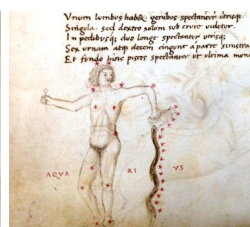 Vnum lumbus habet genibus spectantur utrisque
Singula. sed dextro solum sub crure uidetur.
In pedibusque duo longe spectantur utrisque
Sex urnam atque decem cingunt a parte sinistra
Et fundo hinc pisces spectantur ut ultima
AQVA RI VS